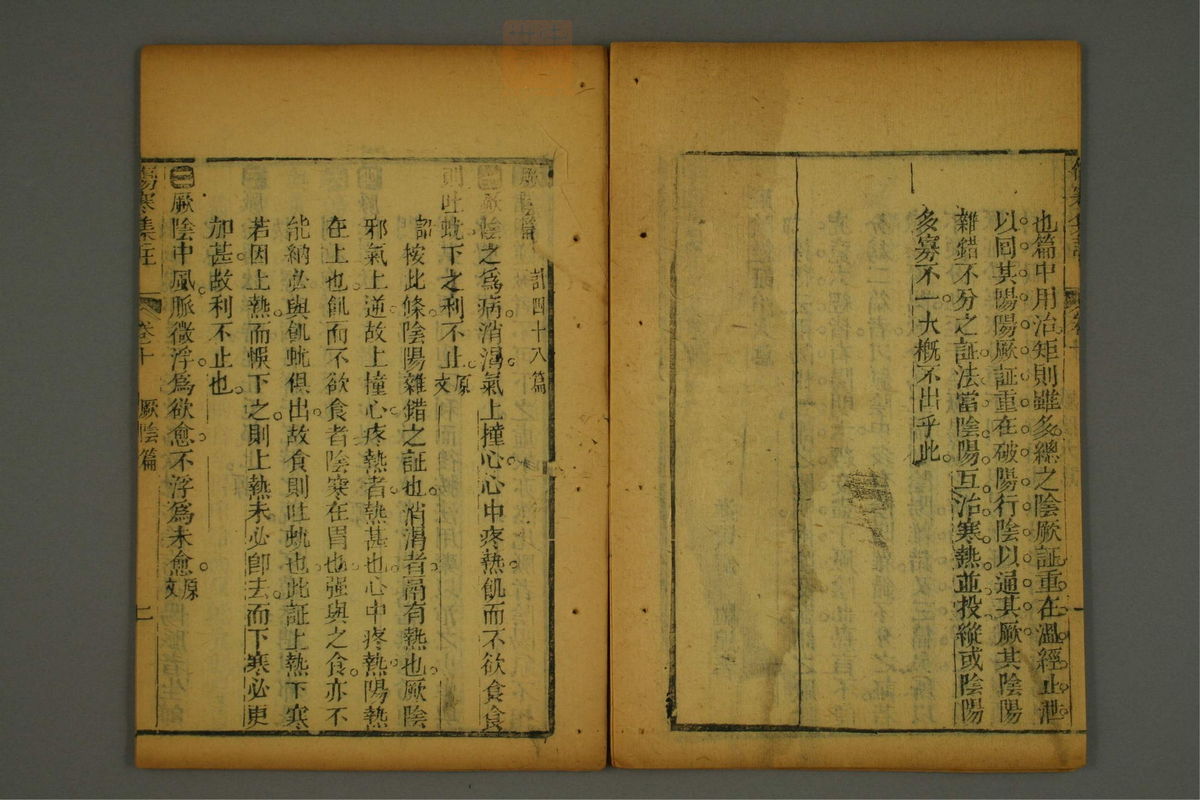 也篇中用治矩則雖多總之陰厥証重在溫經止泄
以回其陽陽厥証重在破陽行陰以通其厥其陰陽
雜錯不分之証法當陰陽互治寒熱並投縱或陰陽
多寡不一大概不出乎此
厥陰篇 計四十八篇
一 厥陰之為病消渴氣上撞心心中疼熱飢而不欲食食
則吐蚘下之利不止 原文
詔 按此條陰陽雜錯之証也消渴者鬲有熱也厥陰
邪氣上逆故上撞心疼熱者熱甚也心中疼熱陽熱
在上也飢而不欲食者陰寒在胃也强與之食亦不
能納必與飢蚘俱出故食則吐蚘也此証上熱下寒
若因上熱而悞下之則上熱未必卽去而下寒必更
加甚故利不止也
二 厥陰中風脈微浮為欲愈不浮為未愈 原文
傷寒集註 卷十 厥陰篇 二